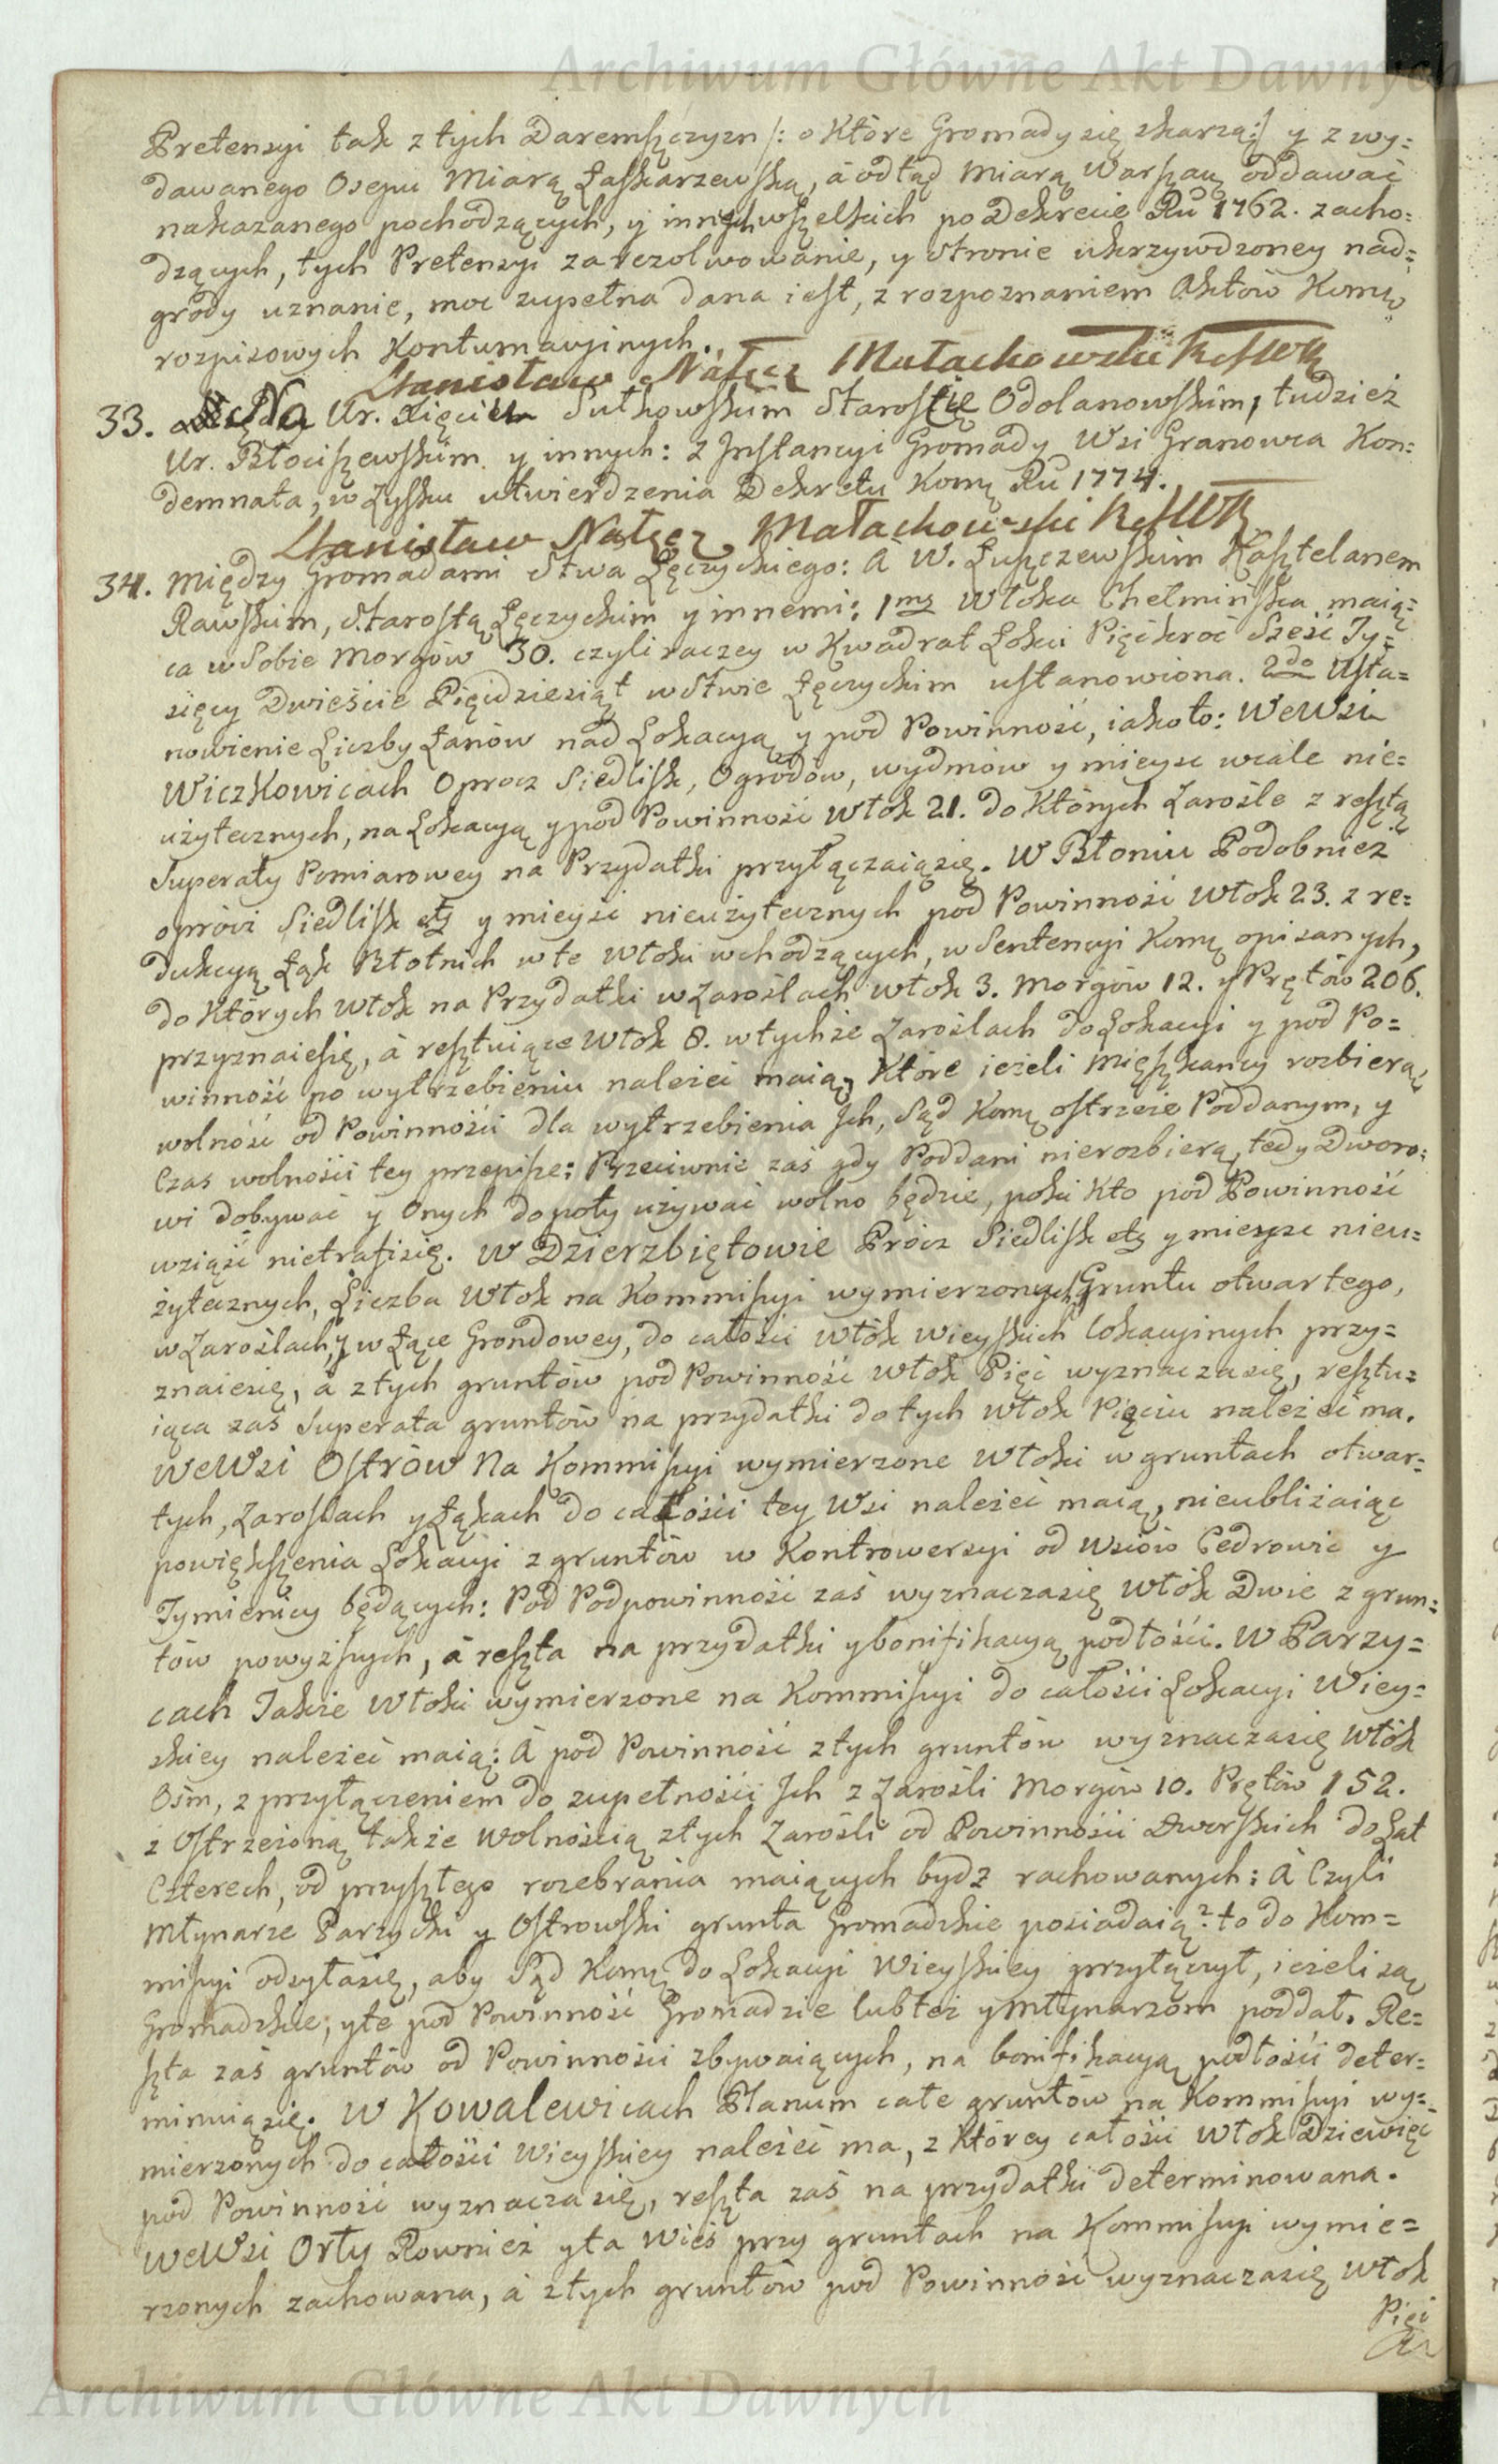 Archiwum Główne Akt Dawnych
Pretensyi tak z tych Daremszczyzn /: o Które Gromady się skarżą :/ y z wy=
dawanego Osepu Miarą Łaskarzewską, à odtąd Miarą Warszaw: oddawać
nakazanego pochodzących, y innych wszelkich po Dekrecie Ru 1762. zacho=
dzących, tych Pretensyi zarezolwowanie, y Stronie ukrzywdzoney nad=
grody uznanie, moc zupełna dana iest, z rozpoznaniem Aktów Kom:
rozpisowych Kontumacyinych.
Stanisław Nałęcz Małachowski RefWK
33. Na Ur. Xięciu Sułkowskim Staroście Odolanowskim, tudzież
Ur. Błociszewskim y innych: z Jnstancyi Gromady Wsi Granowca Kon=
demnata, w Zysku utwierdzenia Dekretu Kom: Ru 1774.
Stanisław Nałęcz Małachowski RefWK
34. Między Gromadami Stwa Łęczyckiego: A W. Łuszczewskim Kasztelanem
Rawskim, Starostą Łęczyckim y innemi: 1mo Włóka Chełmińska maią=
ca w Sobie Morgow 30. czyli raczey w Kwadrat Łokci Pięćkroć Sześć Ty=
sięcy Dwieście Pięćdziesiąt w Stwie Łęczyckim ustanowiona. 2do Usta=
nowienie Liczby Łanów nad Lokacyą y pod Powinność, iako to: We Wsi
Wiczkowicach Oprocz Siedlisk, Ogrodów, wydmów y mieysc wcale nie=
użytecznych, na Lokacyą y pod Powinność Włok 21. do Których Zarośle z resztą
Superaty Pomiarowey na Przydatki przyłączaią się. W Błoniu Podobnież
oprócz Siedlisk etc y mieysc nieużytecznych pod Powinność Włok 23. z re=
dukcyą Łąk Błotnich w te Włoki wchodzących, w Sentencyi Kom: opisanych,
do Których Włok na Przydatki w Zaroślach Włok 3. Morgów 12. y Prętów 206.
przyznaie się, à resztuiące Włok 8. w tychże Zaroślach do Lokacyi y pod Po=
winność po wytrzebieniu należeć maią, Które ieżeli Mieszkańcy rozbierą,
wolność od Powinności dla wytrzebienia Jch, Sąd Kom: ostrzeże Poddanym, y
Czas wolności tey przepisze: Przeciwnie zaś gdy Poddani nierozbierą, tedy Dworo=
wi dobywać y Onych dopoty używać wolno będzie, poki Kto pod Powinność
wziąść nietrafi się. W Dzierzbiętowie Prócz Siedlisk etc y mieysc nieu=
żytecznych, Liczba Włok na Kommissyi wymierzonych Gruntu otwartego,
w Zaroślach, y w Łące Grondowey, do całości Włók Wieyskich Lokacyinych przy=
znaie się, à z tych gruntów pod Powinność Włok Pięć wyznacza się, resztu=
iąca zaś Superata gruntów na przydatki do tych Włok Pięciu należeć ma.
We Wsi Ostrów Na Kommissyi wymierzone Włoki w gruntach otwar=
tych, Zaroslach y Łąkach do całości tey Wsi należeć maią, nieubliżaiąc
powiększenia Lokacyi z gruntów w Kontrowersyi od Wsiów Cedrowic y
Tymienicy będących: Pod Podpowinność zaś wyznacza się Włók Dwie z grun=
tów powyższych, à reszta na przydatki y bonifikacyą podłości. W Parzy=
cach Także Włoki wymierzone na Kommissyi do całości Lokacyi Wiey=
skiey należeć maią: A pod Powinność z tych gruntów wyznacza się Włók
Ośm, z przyłączeniem do zupełności Jch z Zarośli Morgów 10. Prętów 152.
z Ostrzeżoną także wolnością z tych Zarośli od Powinności Dworskich do Lat
Czterech, od przyszłego rozebrania maiących bydz rachowanych: A Czyli
Młynarze Parzycki y Ostrowski grunta Gromadzkie posiadaią? to do Kom=
missyi odsyła się, aby Sąd Kom: do Lokacyi Wieyskiey przyłączył, ieżeli są
Gromadzkie; y te pod Powinność Gromadzie lub też y Młynarzom poddał. Re=
szta zaś gruntów od Powinności zbywaiących, na bonifikacyą podłości deter=
minuią się. W Kowalewicach Planum całe gruntów na Kommissyi wy=
mierzonych do całości Wieyskiey należeć ma, z Którey całości Włok Dziewięć
pod Powinność wyznacza się, reszta zaś na przydatki determinowana.
We Wsi Orły Rownież y ta Wieś przy gruntach na Kommissyi wymie=
rzonych zachowana, à z tych gruntów pod Powinność wyznacza się Włok
Pięć
Archiwum Główne Akt Dawnych